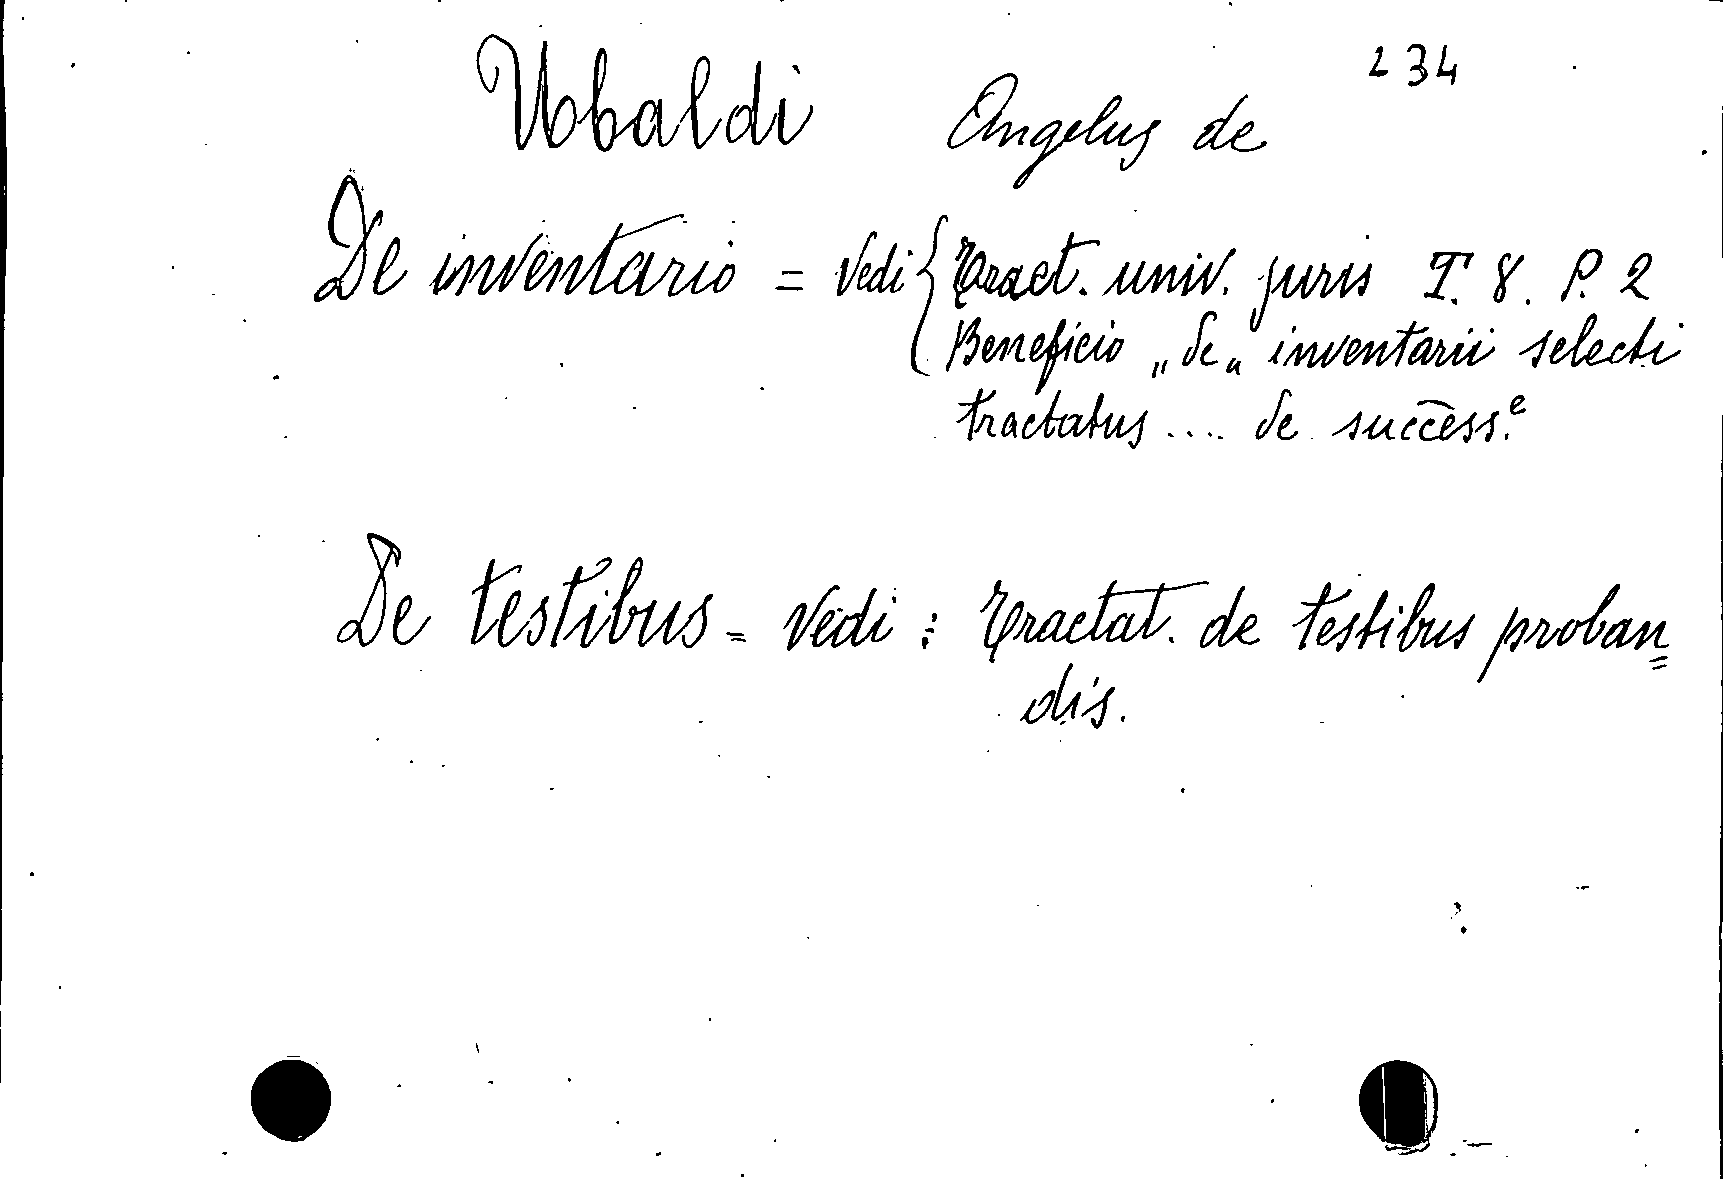 234
Ubaldi Angelus de
De inventario = vedi { Tract. univ. juris T. 8. P. 2
Beneficio „de„ inventarii selecti
tractatus .... de succēss.e
De testibus = vedi : Tractat. de testibus proban=
dis.